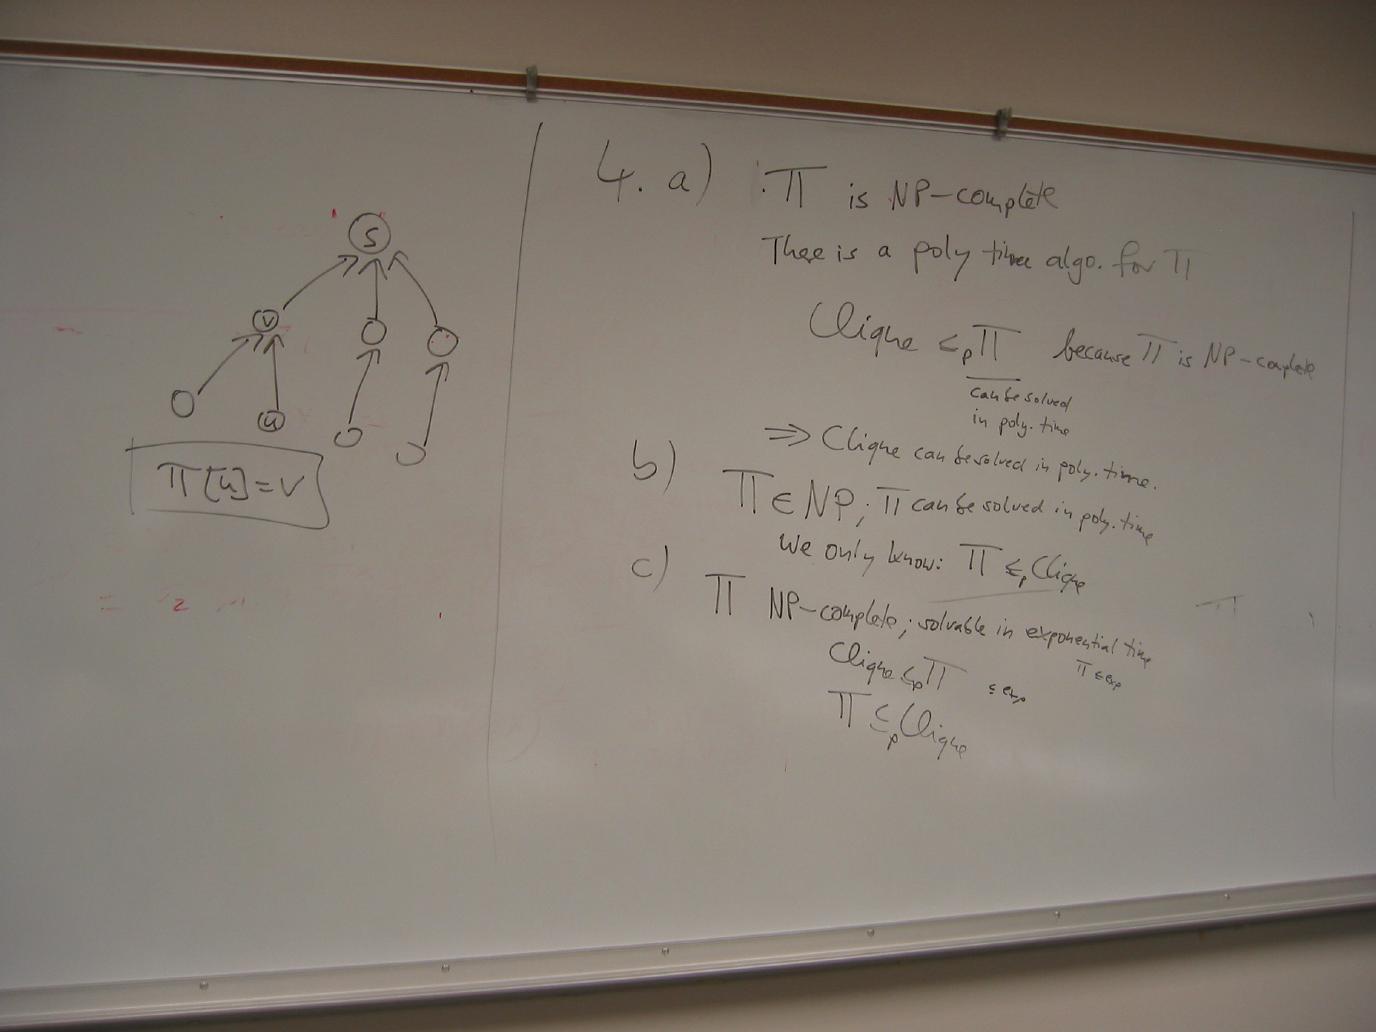 S
v
u
π[u]=v
4. a) Π is NP-complete
There is a poly time algo. for Π
Clique ≤p Π because Π is NP-complete
can be solved
in poly. time
⇒ Clique can be solved in poly. time.
b) Π ∈ NP; Π can be solved in poly. time
We only know: Π ≤p Clique
c) Π NP-complete; solvable in exponential time
Π ∈ exp
Clique ≤p Π ∈ exp
Π ≤p Clique